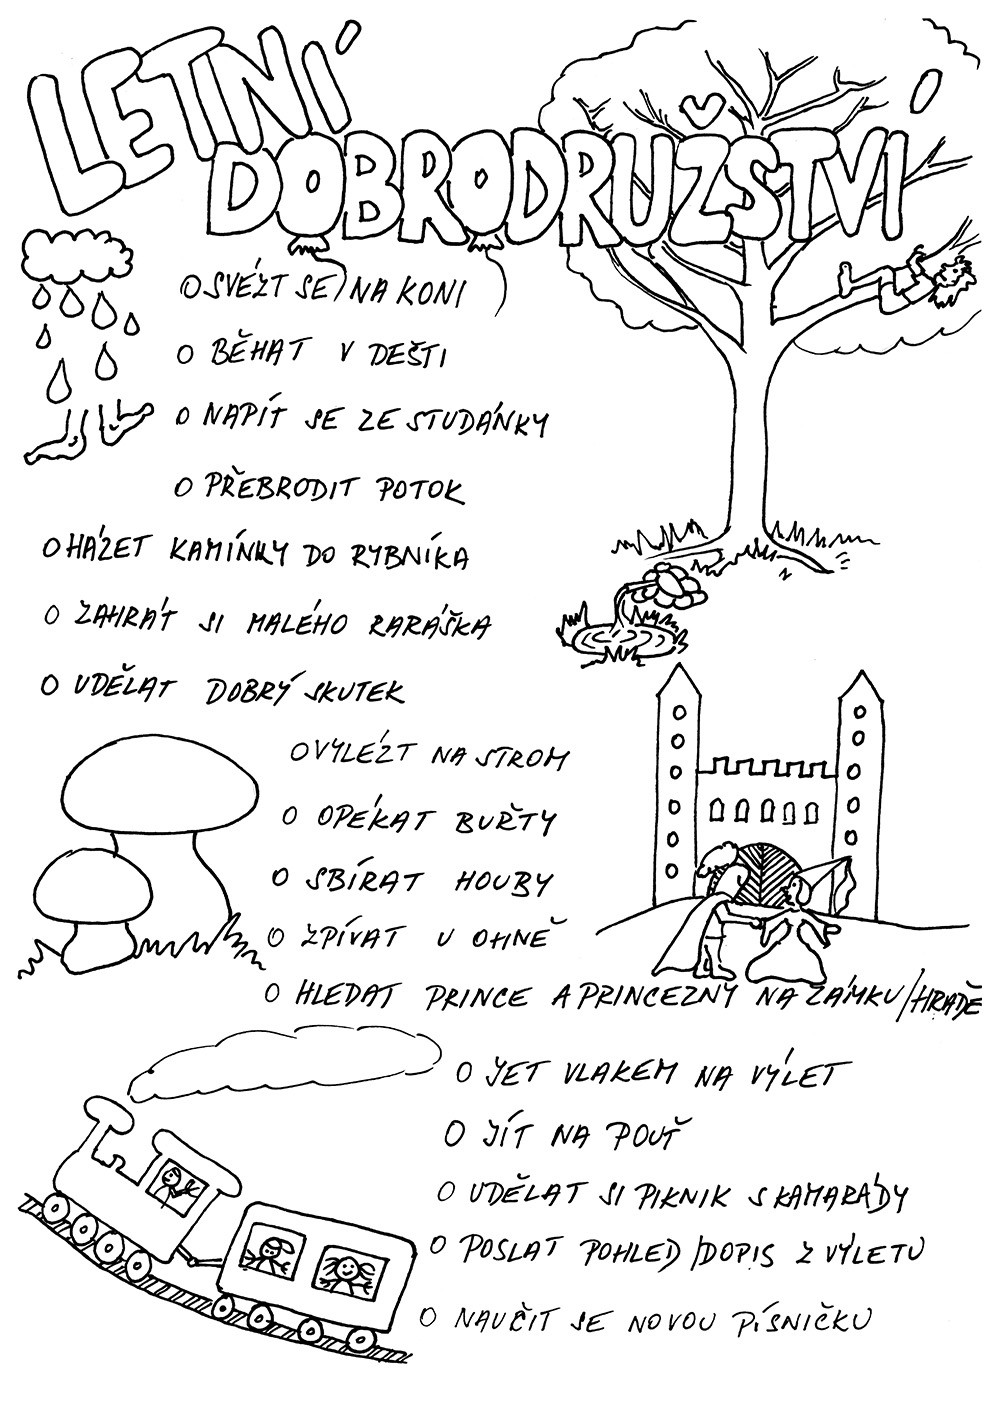 LETNÍ
DOBRODRUŽSTVÍ
O SVÉZT SE NA KONI
O BĚHAT V DEŠTI
O NAPÍT SE ZE STUDÁNKY
O PŘEBRODIT POTOK
O HÁZET KAMÍNKY DO RYBNÍKA
O ZAHRÁT SI MALÉHO RARÁŠKA
O UDĚLAT DOBRÝ SKUTEK
O VYLÉZT NA STROM
O OPÉKAT BUŘTY
O SBÍRAT HOUBY
O ZPÍVAT U OHNĚ
O HLEDAT PRINCE A PRINCEZNY NA ZÁMKU/HRADĚ
O JET VLAKEM NA VÝLET
O JÍT NA POUŤ
O UDĚLAT SI PIKNIK S KAMARÁDY
O POSLAT POHLED/DOPIS Z VÝLETU
O NAUČIT SE NOVOU PÍSNIČKU